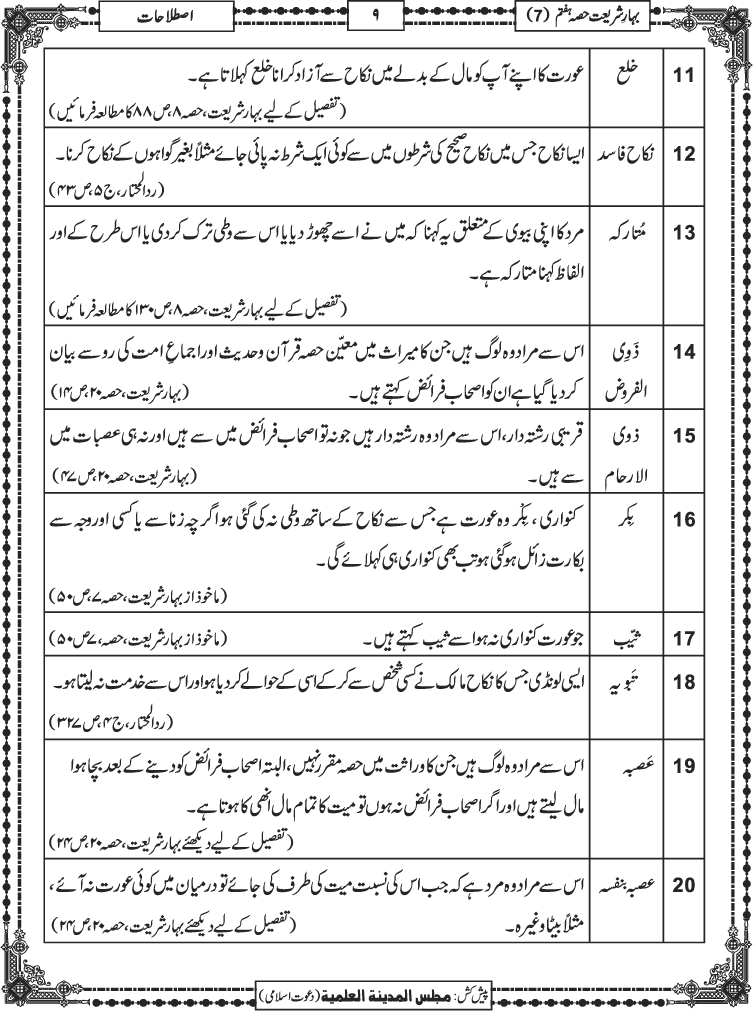 بہارِ شریعت حصہ ہفتم (7) ۹ اصطلاحات
11 خلع عورت کا اپنے آپ کو مال کے بدلے میں نکاح سے آزاد کرانا خلع کہلاتا ہے۔
(تفصیل کے لیے بہار شریعت، حصہ ۸، ص ۸۸ کا مطالعہ فرمائیں)
12 نکاح فاسد ایسا نکاح جس میں نکاح صحیح کی شرطوں میں سے کوئی ایک شرط نہ پائی جائے مثلاً بغیر گواہوں کے نکاح کرنا۔
(ردالمحتار، ج ۵، ص ۴۳)
13 مُتارکہ مرد کا اپنی بیوی کے متعلق یہ کہنا کہ میں نے اسے چھوڑ دیا یا اس سے وطی ترک کردی یا اس طرح کے اور
الفاظ کہنا متارکہ ہے۔
(تفصیل کے لیے بہار شریعت، حصہ ۸، ص ۱۳۰ کا مطالعہ فرمائیں)
14 ذَوِی اس سے مراد وہ لوگ ہیں جن کا میراث میں معیّن حصہ قرآن وحدیث اور اجماعِ امت کی رو سے بیان
الفروض کردیا گیا ہے ان کو اصحاب فرائض کہتے ہیں۔ (بہار شریعت، حصہ ۲۰، ص ۱۴)
15 ذوی قریبی رشتہ دار، اس سے مراد وہ رشتہ دار ہیں جو نہ تو اصحاب فرائض میں سے ہیں اور نہ ہی عصبات میں
الارحام سے ہیں۔ (بہار شریعت، حصہ ۲۰، ص ۴۷)
16 بِکر کنواری، بِکْر وہ عورت ہے جس سے نکاح کے ساتھ وطی نہ کی گئی ہو اگر چہ زنا سے یا کسی اور وجہ سے
بکارت زائل ہوگئی ہو تب بھی کنواری ہی کہلائے گی۔
(ماخوذ از بہار شریعت، حصہ ۷، ص ۵۰)
17 ثیّب جو عورت کنواری نہ ہو اسے ثیب کہتے ہیں۔ (ماخوذ از بہار شریعت، حصہ ۷، ص ۵۰)
18 تَبْوِیہ ایسی لونڈی جس کا نکاح مالک نے کسی شخص سے کرکے اسی کے حوالے کردیا ہو اور اس سے خدمت نہ لیتا ہو۔
(ردالمحتار، ج ۴، ص ۳۲۷)
19 عَصبہ اس سے مراد وہ لوگ ہیں جن کا وراثت میں حصہ مقرر نہیں، البتہ اصحاب فرائض کو دینے کے بعد بچا ہوا
مال لیتے ہیں اور اگر اصحاب فرائض نہ ہوں تو میت کا تمام مال انھی کا ہوتا ہے۔
(تفصیل کے لیے دیکھئے بہار شریعت، حصہ ۲۰، ص ۲۴)
20 عصبہ بنفسہ اس سے مراد وہ مرد ہے کہ جب اس کی نسبت میت کی طرف کی جائے تو درمیان میں کوئی عورت نہ آئے،
مثلاً بیٹا وغیرہ۔ (تفصیل کے لیے دیکھئے بہار شریعت، حصہ ۲۰، ص ۲۴)
پیش کش: مجلس المدینة العلمیة (دعوت اسلامی)